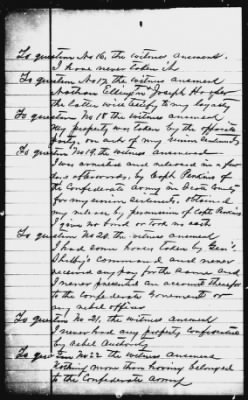 To question No 16, the witness answered.
I have never taken it
To question No 17, the witness answered
Nathan Ellington & Joseph
the latter will testify to my loyalty
To question No 18 the witness answered
My property was taken by the opposite
party, on act of my Union sentiments
To question No 19, the witness answered
I was arrested and released in a few
days afterwards; by Capt Perkins of
the Confederate Army in County
for my union sentiments. obtained
my release by permission of Capt Perkins
I gave no bond or took no oath
To question No 20, the witness answered
I had some horses taken by Gen'l
Shelby's Command and never
received any pay for the same and
I never presented an account therefor
to the Confederate Government or
any rebel officer
To question No 21, the witness answered
I never had any property confiscated
by rebel Authority
To question No 22 the witness answered
Nothing more than having belonged
to the Confederate Army